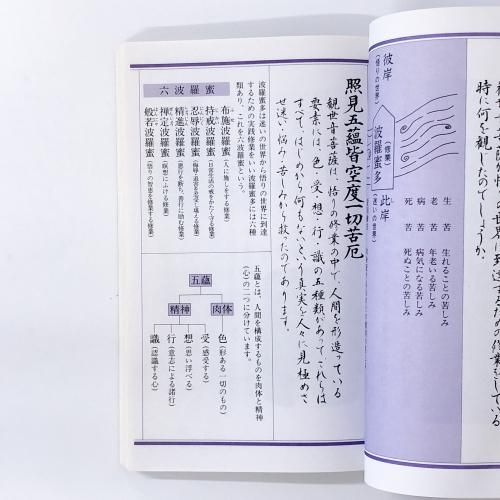 彼岸
(悟りの世界)
(修業)
波羅蜜多
此岸
(迷いの世界)
生苦 生れることの苦しみ
老苦 年老いる苦しみ
病苦 病気になる苦しみ
死苦 死ぬことの苦しみ
照見五蘊皆空度一切苦厄
観世音菩薩は、悟りの修業の中で、人間を形造っている
要素には、色・受・想・行・識の五種類があって、これらは
すべて、はじめから何もないという真実を人々に見極めさ
せ、迷い、悩み、苦しみから救ったのであります。
波羅蜜多は迷いの世界から悟りの世界に到達
するための実践修業をいい、波羅蜜多には六種
類あり、これを六波羅蜜という。
六波羅蜜
布施波羅蜜(人に施しをする修業)
持戒波羅蜜
忍辱波羅蜜
精進波羅蜜(悪行を断ち、善行に励む修業)
禅定波羅蜜(瞑想にふける修業)
般若波羅蜜(悟りの智恵を修業する修業)
五蘊とは、人間を構成するものを肉体と精神
(心)の二つに分けています。
五蘊
肉体
精神
色(形ある一切のもの)
受(感受する)
想(思い浮べる)
行(意志による諸行)
識(認識する心)